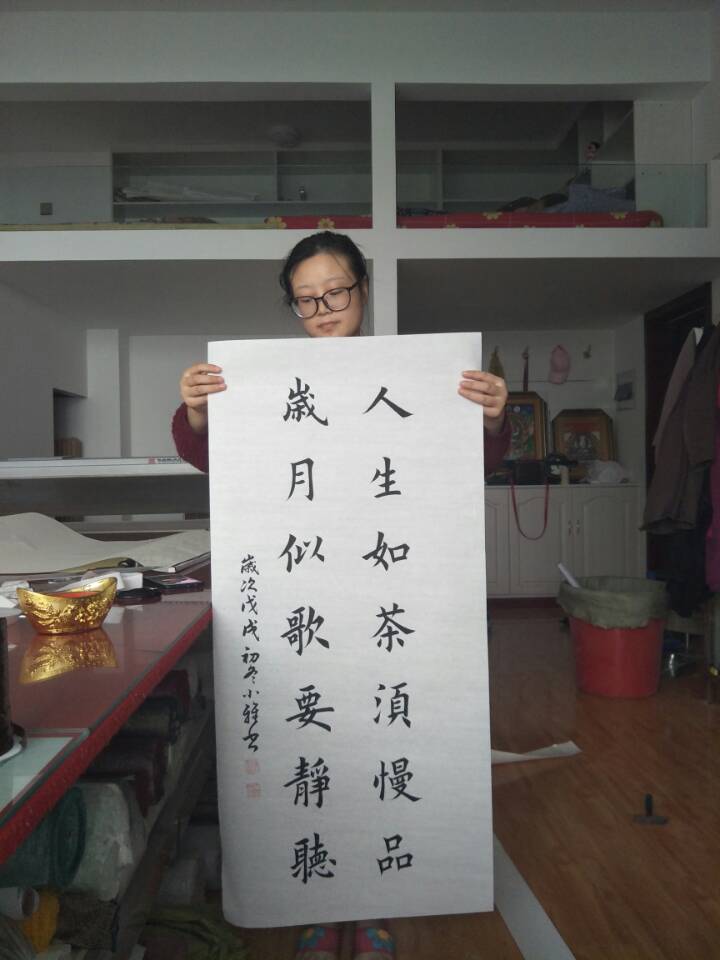 人生如茶須慢品
歲月似歌要靜聽
歲次戊戌初冬小雅书